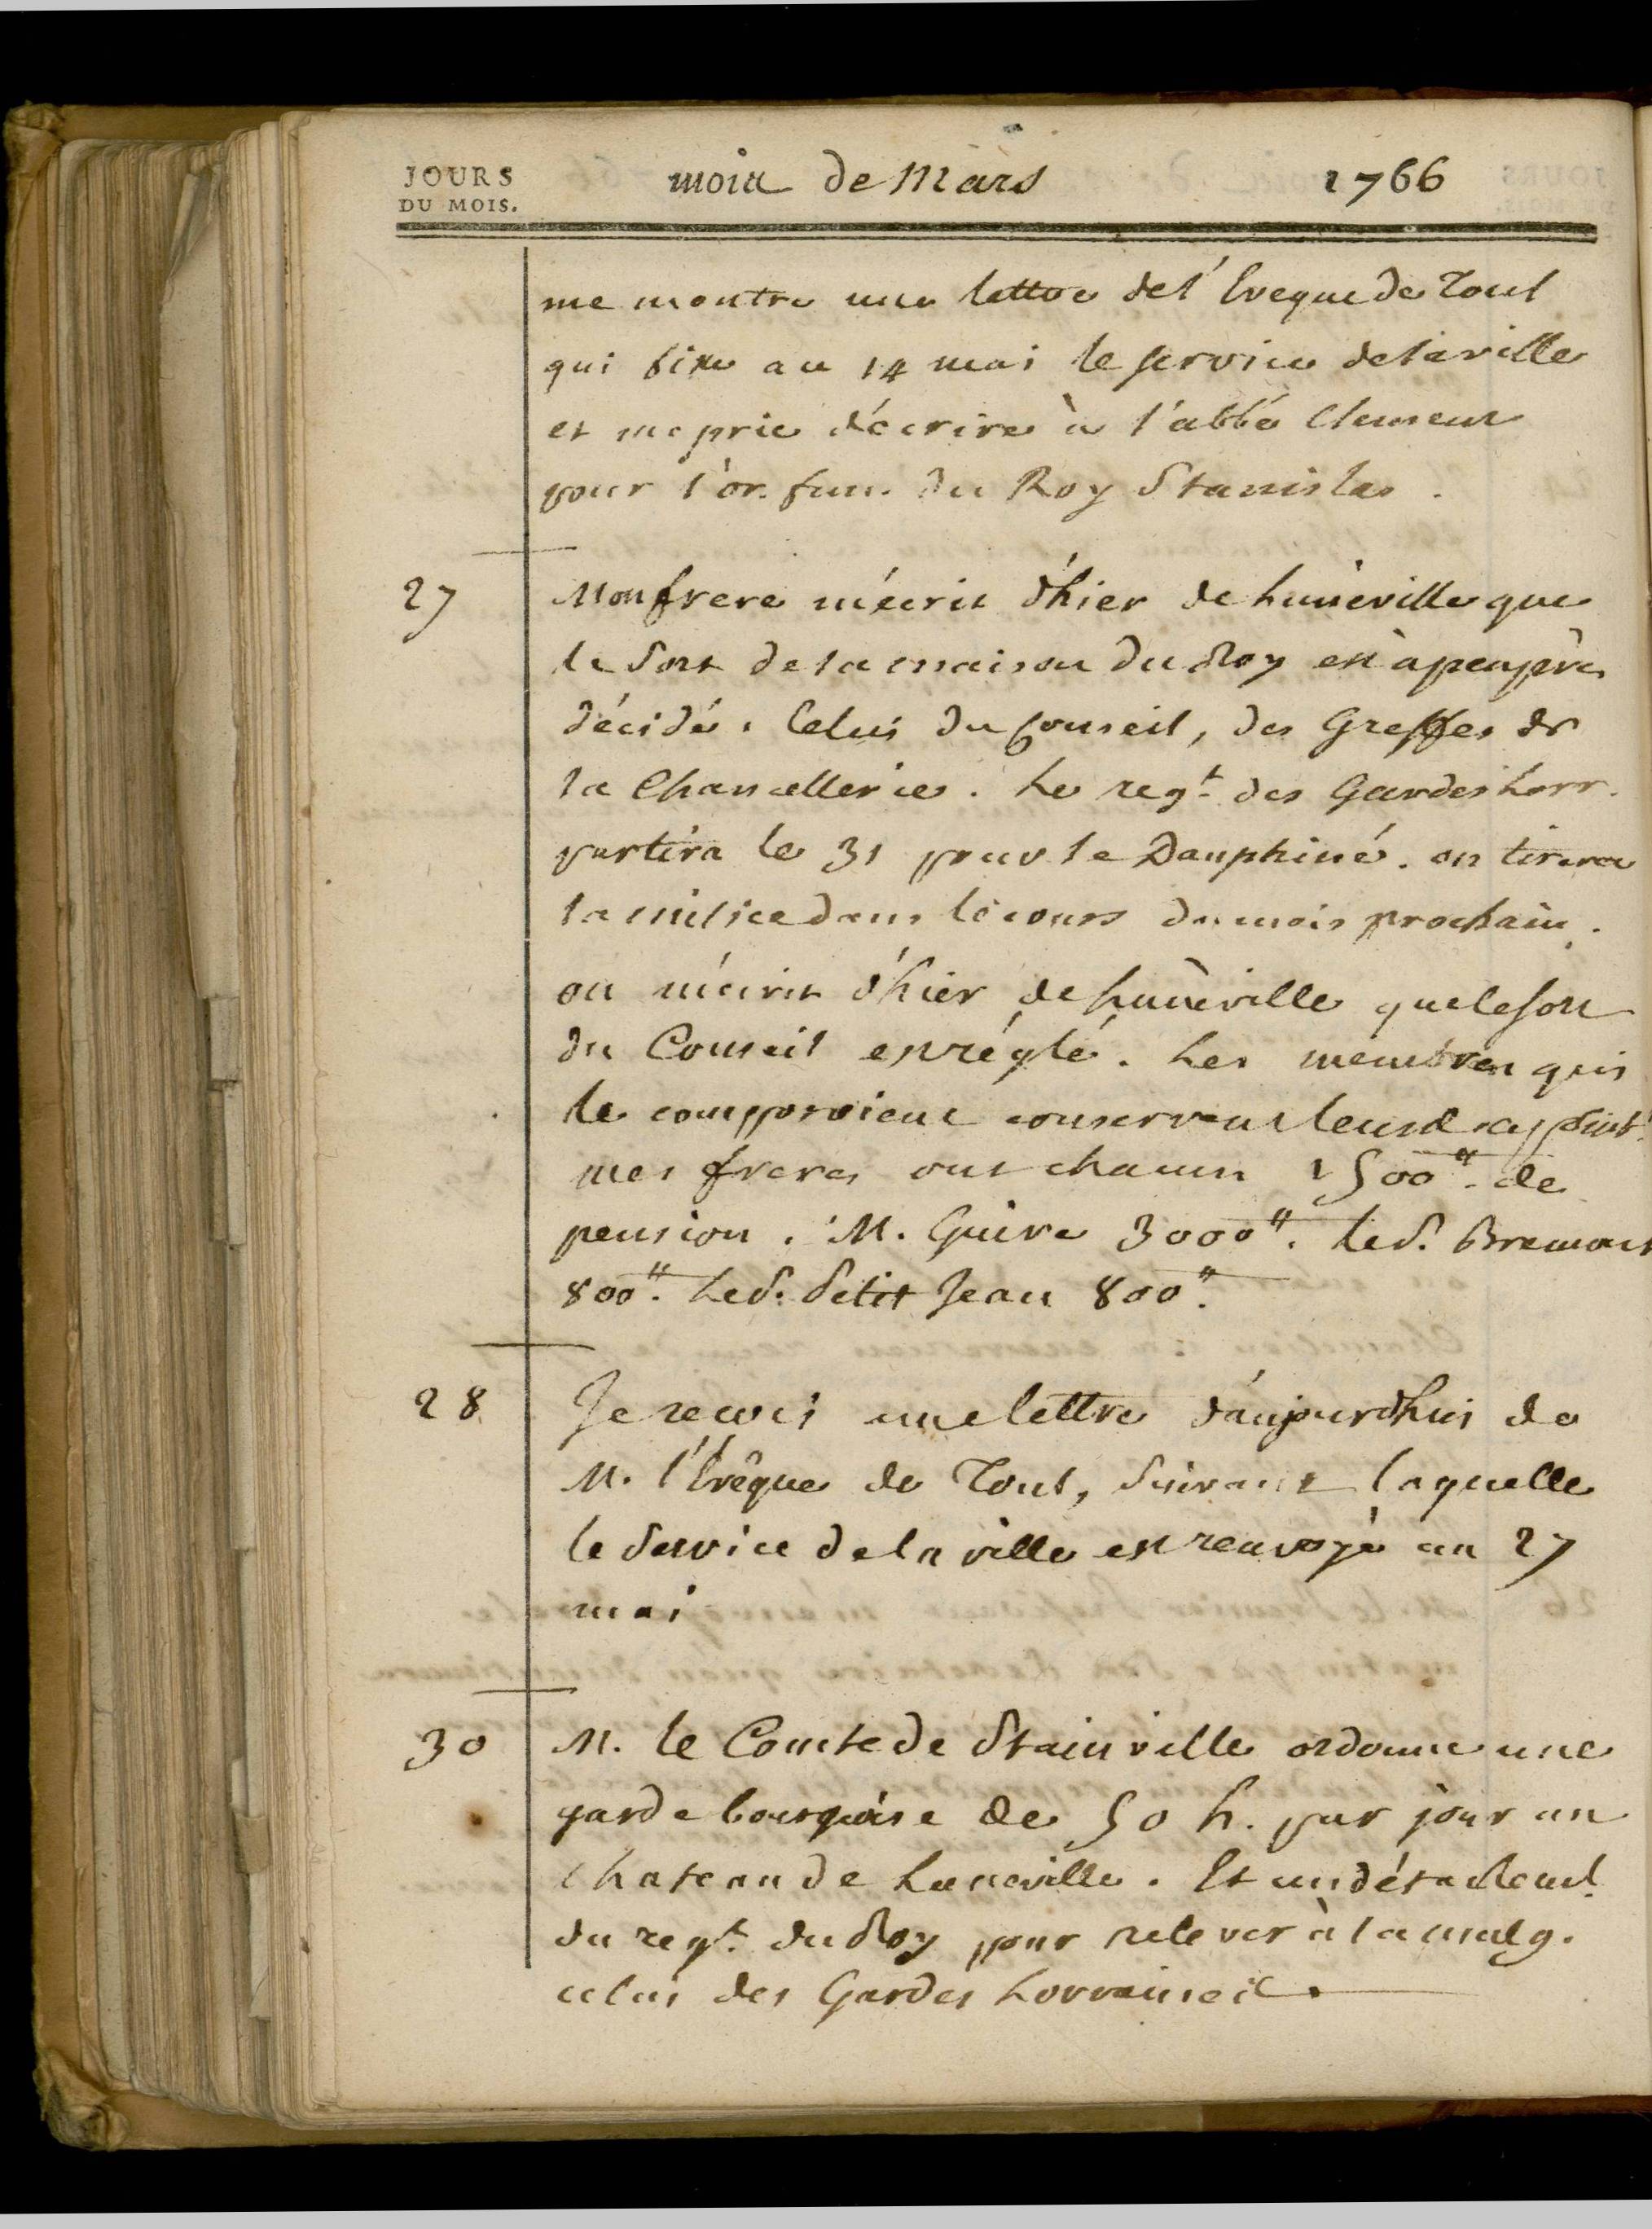 JOURS
DU MOIS.
mois de Mars 1766
me montre une lettre de l'Eveque de Toul
qui fixe au 14 mai le service de la ville
et me prie d'écrire à l'abbé Clement
pour l'or. fun. du Roy Stanislas.
27 Mon frere m'écrit d'hier de Luneville que
le sort de la maison du Roy est à peu près
décidé. Celui du Conseil, des Greffes de
la Chancellerie. Le reg.t des Gardes Lorr.
partira le 31 pour le Dauphiné. on tirera
la milice dans le cours du mois prochain.
on m'écrit d'hier de Luneville que le sort
du Conseil est réglé. Les membres qui
le composoient conservent leurs appoint.
mes freres ont chacun 1500 ₶. de
pension. M. Guire 3000 ₶. Le S. Bremont
800 ₶. Le S. Petit Jean 800 ₶.
28 Je recois une lettre d'aujourdhui de
M. l'Evêque de Toul, suivant laquelle
le service de la ville est renvoyé au 27
mai
30 M. le Comte de Stainville ordonne une
garde bourgeoise de 50 h. par jour au
chateau de Luneville. Et un détachem.t
du reg.t du Roy pour relever à la malg.
celui des Gardes Lorraines.